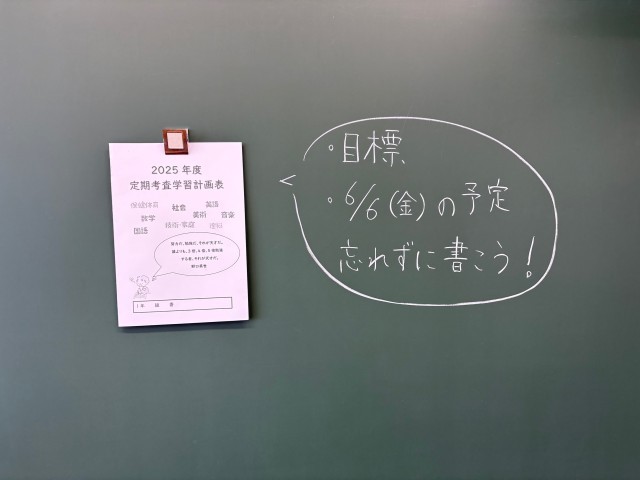 2025 年度
定期考査学習計画表
保健体育 社会 英語
数学 美術 音楽
国語 技術・家庭 理科
1年 組 番
・目標
・6/6(金)の予定
忘れずに書こう!